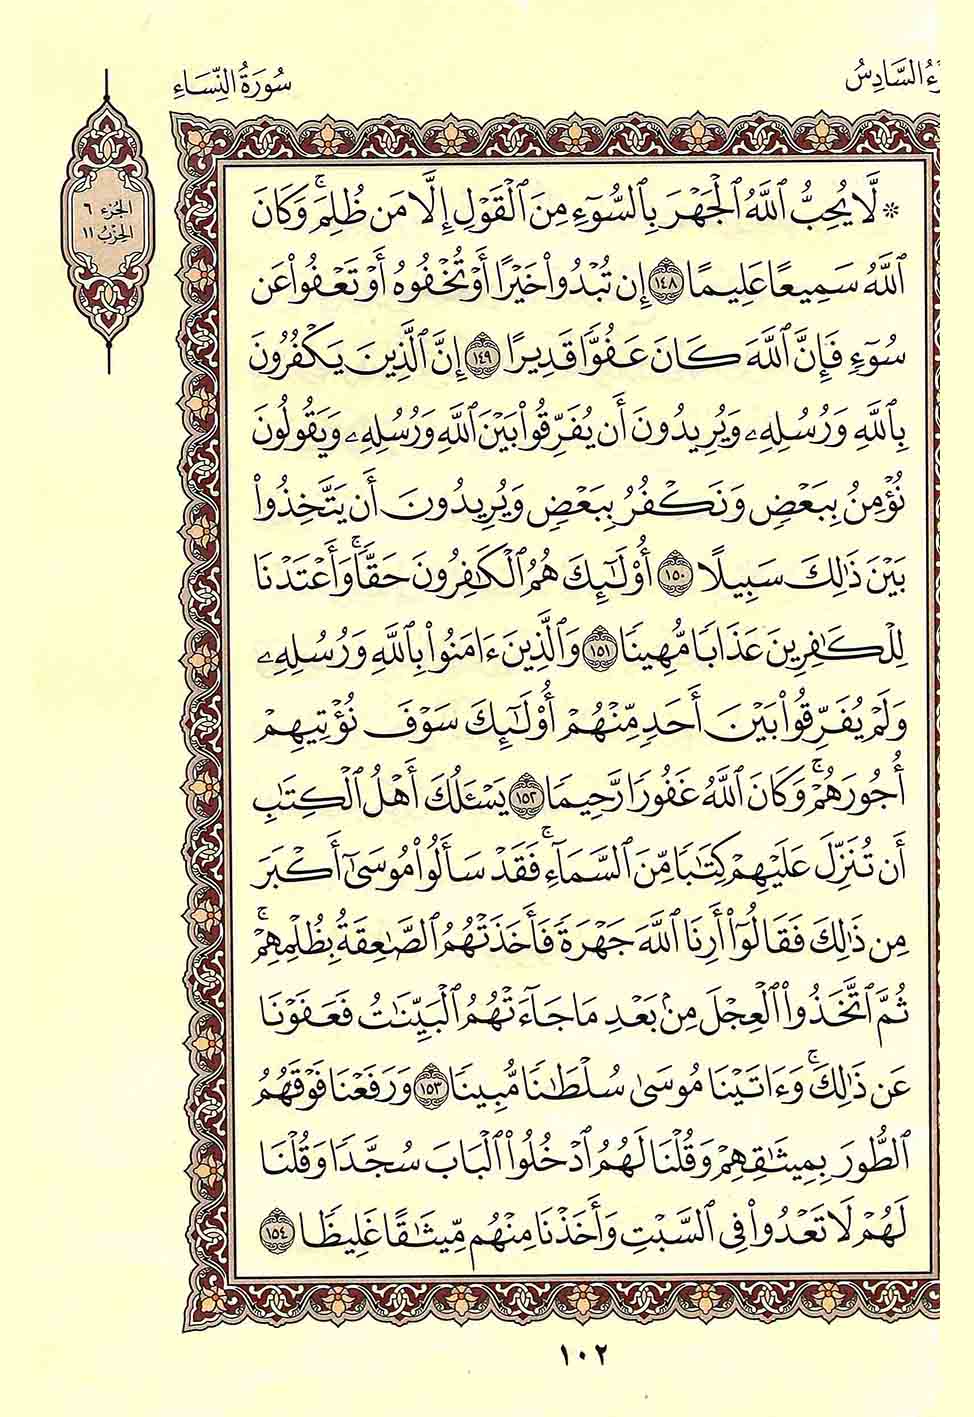 سُورَةُ النِّسَاءِ
السَّادِسُ
الجُزء ٦
الحِزب ١١
۞ لَّا يُحِبُّ ٱللَّهُ ٱلْجَهْرَ بِٱلسُّوٓءِ مِنَ ٱلْقَوْلِ إِلَّا مَن ظُلِمَۚ وَكَانَ
ٱللَّهُ سَمِيعًا عَلِيمًا ١٤٨ إِن تُبْدُوا۟ خَيْرًا أَوْ تُخْفُوهُ أَوْ تَعْفُوا۟ عَن
سُوٓءٍ فَإِنَّ ٱللَّهَ كَانَ عَفُوًّا قَدِيرًا ١٤٩ إِنَّ ٱلَّذِينَ يَكْفُرُونَ
بِٱللَّهِ وَرُسُلِهِۦ وَيُرِيدُونَ أَن يُفَرِّقُوا۟ بَيْنَ ٱللَّهِ وَرُسُلِهِۦ وَيَقُولُونَ
نُؤْمِنُ بِبَعْضٍ وَنَكْفُرُ بِبَعْضٍ وَيُرِيدُونَ أَن يَتَّخِذُوا۟
بَيْنَ ذَٰلِكَ سَبِيلًا ١٥٠ أُو۟لَٰٓئِكَ هُمُ ٱلْكَٰفِرُونَ حَقًّاۚ وَأَعْتَدْنَا
لِلْكَٰفِرِينَ عَذَابًا مُّهِينًا ١٥١ وَٱلَّذِينَ ءَامَنُوا۟ بِٱللَّهِ وَرُسُلِهِۦ
وَلَمْ يُفَرِّقُوا۟ بَيْنَ أَحَدٍ مِّنْهُمْ أُو۟لَٰٓئِكَ سَوْفَ نُؤْتِيهِمْ
أُجُورَهُمْۚ وَكَانَ ٱللَّهُ غَفُورًا رَّحِيمًا ١٥٢ يَسْـَٔلُكَ أَهْلُ ٱلْكِتَٰبِ
أَن تُنَزِّلَ عَلَيْهِمْ كِتَٰبًا مِّنَ ٱلسَّمَآءِۚ فَقَدْ سَأَلُوا۟ مُوسَىٰٓ أَكْبَرَ
مِن ذَٰلِكَ فَقَالُوٓا۟ أَرِنَا ٱللَّهَ جَهْرَةً فَأَخَذَتْهُمُ ٱلصَّٰعِقَةُ بِظُلْمِهِمْۚ
ثُمَّ ٱتَّخَذُوا۟ ٱلْعِجْلَ مِنۢ بَعْدِ مَا جَآءَتْهُمُ ٱلْبَيِّنَٰتُ فَعَفَوْنَا
عَن ذَٰلِكَۚ وَءَاتَيْنَا مُوسَىٰ سُلْطَٰنًا مُّبِينًا ١٥٣ وَرَفَعْنَا فَوْقَهُمُ
ٱلطُّورَ بِمِيثَٰقِهِمْ وَقُلْنَا لَهُمُ ٱدْخُلُوا۟ ٱلْبَابَ سُجَّدًا وَقُلْنَا
لَهُمْ لَا تَعْدُوا۟ فِى ٱلسَّبْتِ وَأَخَذْنَا مِنْهُم مِّيثَٰقًا غَلِيظًا ١٥٤
١٠٢